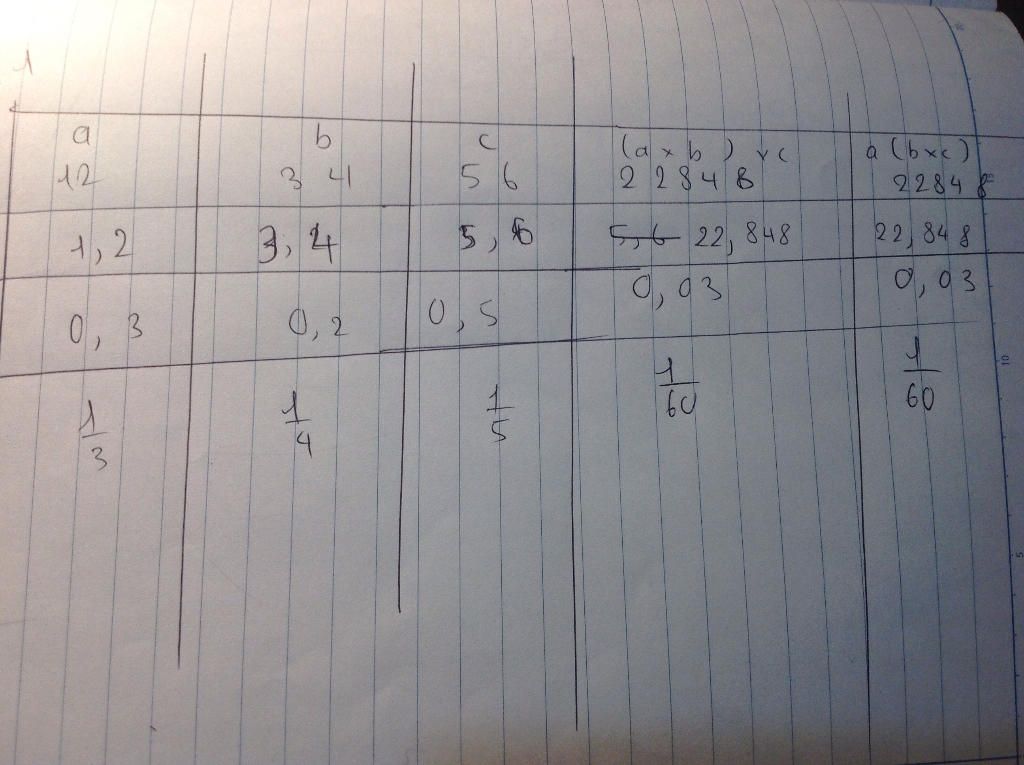 1
a b c (a x b) x c a (b x c)
12 34 56 22848 22848
1,2 3,4 5,6 5,6 22,848 22,848
0,3 0,2 0,5 0,03 0,03
1/3 1/4 1/5 1/60 1/60